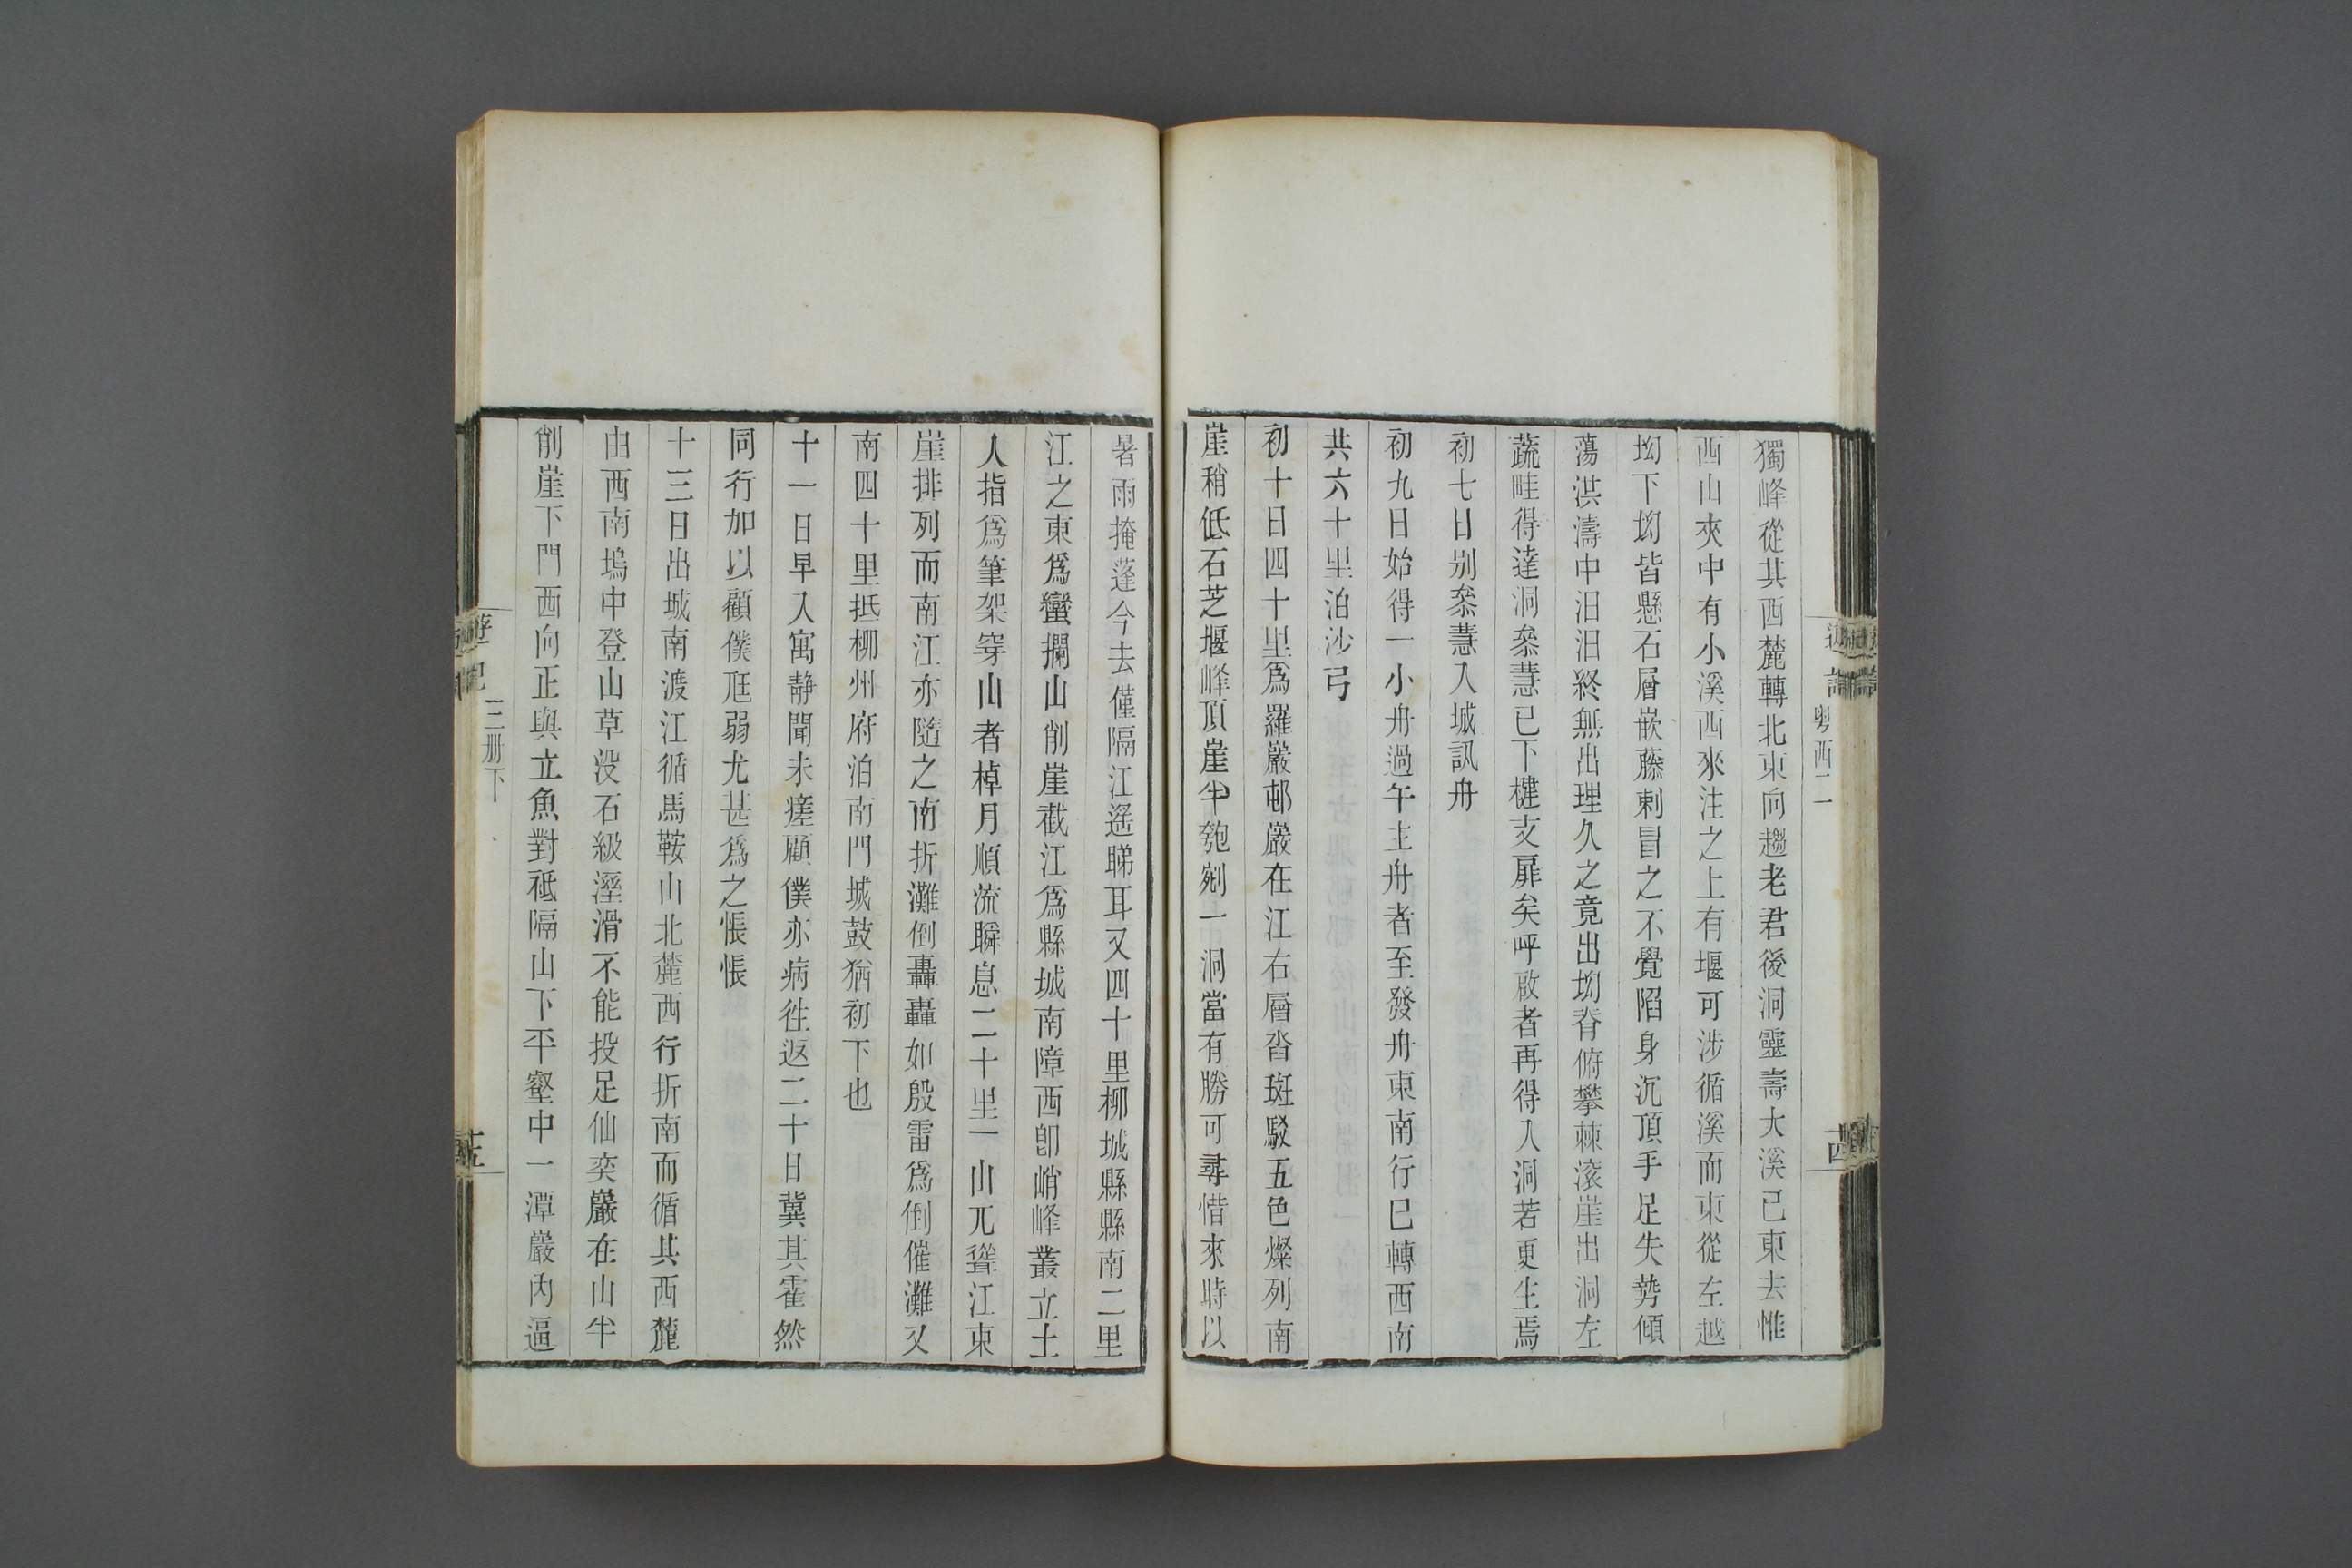 粤西二
獨峰從其西麓轉北東向趨老君後洞靈壽大溪已東去惟
西山夾中有小溪西來注之上有堰可涉循溪而東從左越
坳下坳皆懸石層嵌藤刺冒之不覺陷身沉頂手足失勢傾
蕩洪濤中汨汨終無出理久之竟出坳脊俯攀棘滚崖出洞左
蔬畦得達洞叅慧已下楗支扉矣呼啟者再得入洞若更生焉
初七日别叅慧入城訊舟
初九日始得一小舟過午主舟者至發舟東南行已轉西南
共六十里泊沙弓
初十日四十里爲羅巖邨巖在江右層沓斑駁五色燦列南
崖稍低石芝堰峰頂崖半匏剜一洞當有勝可尋惜來時以
暑雨掩蓬今去僅隔江遥睇耳又四十里柳城縣縣南二里
江之東爲蠻攔山削崖截江爲縣城南障西卽峭峰叢立土
人指爲筆架穿山者棹月順流瞬息二十里一山兀聳江東
崖排列而南江亦隨之南折灘倒轟轟如殷雷爲倒催灘又
南四十里抵柳州府泊南門城鼓猶初下也
十一日早入寓靜聞未瘥顧僕亦病徃返二十日冀其霍然
同行加以顧僕尫弱尤甚爲之悵悵
十三日出城南渡江循馬鞍山北麓西行折南而循其西麓
由西南塢中登山草没石級溼滑不能投足仙奕巖在山半
削崖下門西向正與立魚對祗隔山下平壑中一潭巖内逼
遊記
三册下